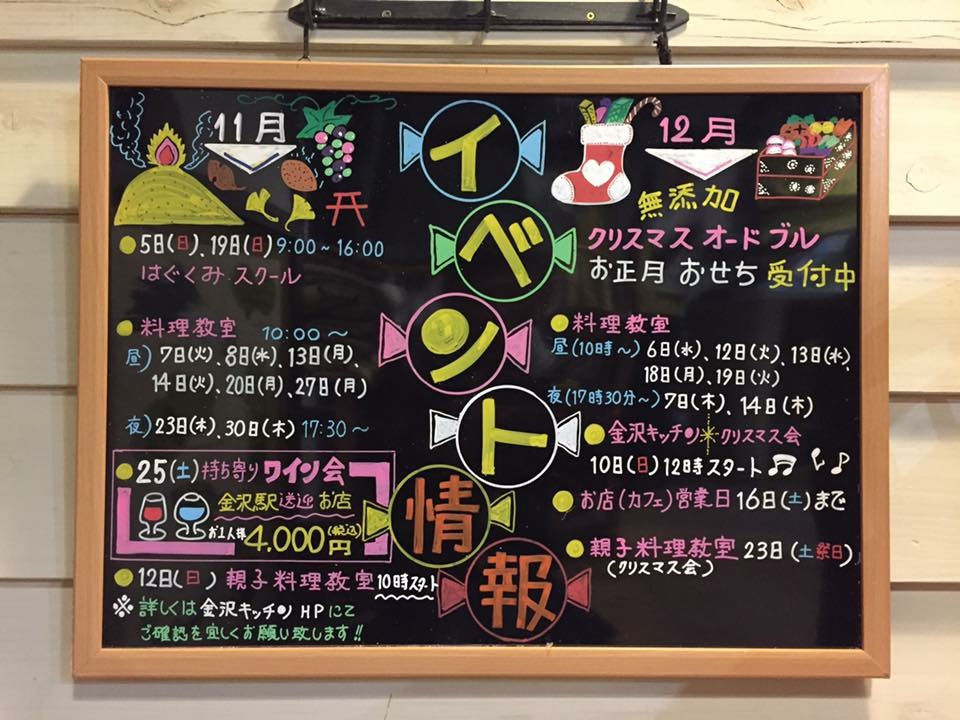 イベント情報
11月
5日(日)、19日(日) 9:00~16:00
はぐくみ スクール
料理教室 10:00~
昼) 7日(火)、8日(水)、13日(月)、
14日(火)、20日(月)、27日(月)
夜) 23日(木)、30日(木) 17:30~
25(土) 持ち寄り ワイン会
金沢駅送迎お店
お1人様 4,000円(税込)
12日(日) 親子料理教室 10時スタート
※ 詳しくは 金沢キッチン HPにて
ご確認を宜しくお願い致します!!
12月
無添加
クリスマス オードブル
お正月 おせち 受付中
料理教室
昼(10時~) 6日(水)、12日(火)、13日(水)、
18日(月)、19日(火)
夜(17時30分~) 7日(木)、14日(木)
金沢キッチン クリスマス会
10日(日) 12時スタート
お店(カフェ)営業日 16日(土)まで
親子料理教室 23日(土祭日)
(クリスマス会)